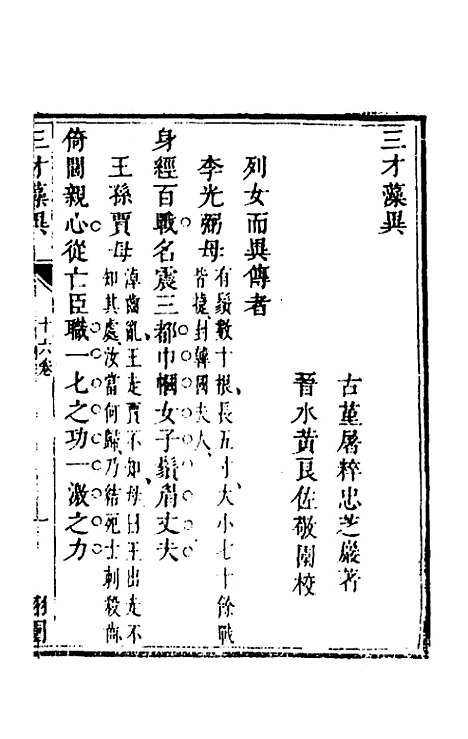 三才藻異
古堇屠粹忠芝巖著
晉水黃良佐敬園校
列女而異傳者
李光弼母
有鬚數十根長五寸大小七十餘戰
皆捷封韓國夫人
身經百戰名震三都巾幗女子鬚眉丈夫
王孫賈母
淖齒亂王走賈不知母曰王出走不
知其處汝當何歸乃結死士刺殺淖
倚閭親心從亡臣職一七之功一激之力
三才藻異
十六卷